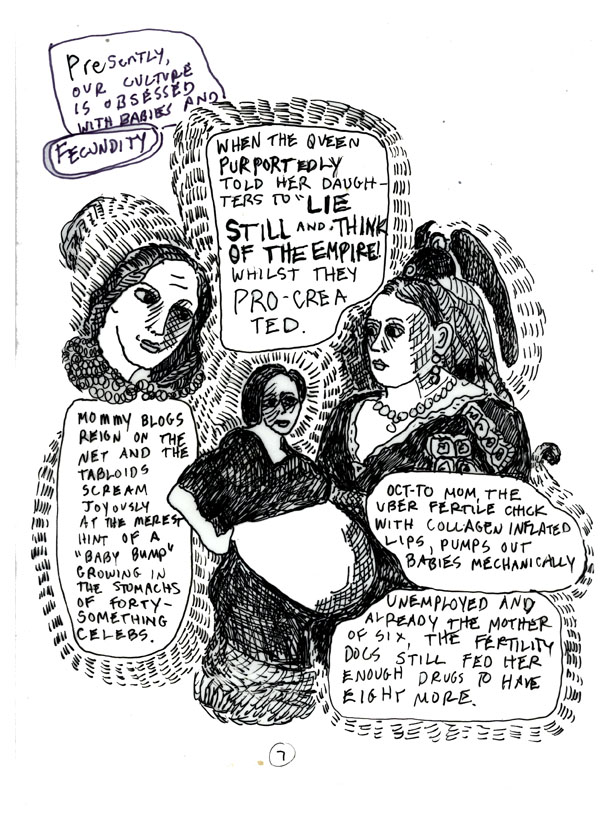 Presently,
OUR CULTURE
IS OBSESSED
WITH BABIES AND
FECUNDITY
WHEN THE QUEEN
PURPORTEDLY
TOLD HER DAUGH-
TERS TO "LIE
STILL AND THINK
OF THE EMPIRE!
WHILST THEY
PRO-CREA
TED.
MOMMY BLOGS
REIGN ON THE
NET AND THE
TABLOIDS
SCREAM
JOYOUSLY
AT THE MEREST
HINT OF A
"BABY BUMP"
GROWING IN
THE STOMACHS
OF FORTY-
SOMETHING
CELEBS.
OCT-TO MOM, THE
UBER FERTILE CHICK
WITH COLLAGEN INFLATED
LIPS, PUMPS OUT
BABIES MECHANICALLY
UNEMPLOYED AND
ALREADY THE MOTHER
OF SIX, THE FERTILITY
DOCS STILL FED HER
ENOUGH DRUGS TO HAVE
EIGHT MORE.
7